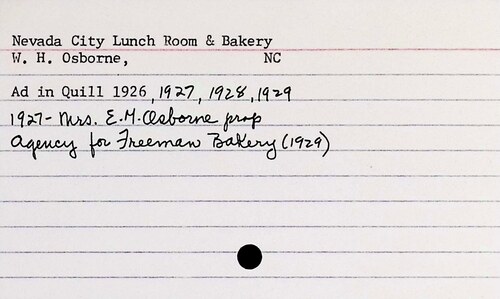 Nevada City Lunch Room & Bakery
W. H. Osborne, NC
Ad in Quill 1926, 1927, 1928, 1929
1927- Mrs. E.M. Osborne prop
Agency for Freeman Bakery (1929)